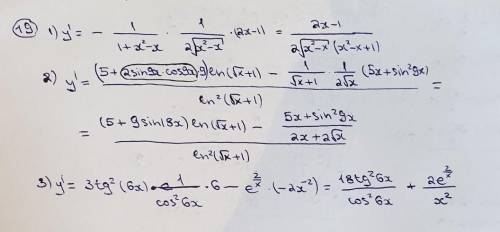 19 1) y' = - 1/(1+x²-x) · 1/(2√(x²-x)) · (2x-1) = (2x-1)/(2√(x²-x) (x²-x+1))
2) y' = ((5+2sin9x·cos9x·9)ln(√x+1) - 1/(√x+1) · 1/(2√x) (5x+sin²9x))/(ln²(√x+1)) =
= ((5+9sin18x)ln(√x+1) - (5x+sin²9x)/(2x+2√x))/(ln²(√x+1))
3) y' = 3tg²(6x) · 1/(cos²6x) · 6 - e^(2/x) · (-2x⁻²) = (18tg²6x)/(cos²6x) + (2e^(2/x))/(x²)